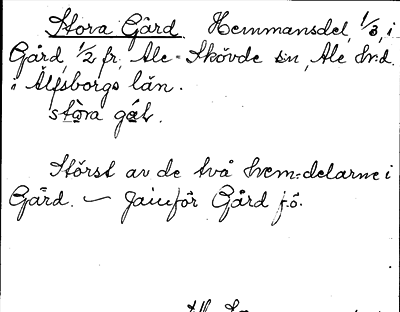 Stora Gärd. Hemmansdel, 1/3, i
Gärd, 1/2 fr, Ale-Skövde sn, Ale hrd.
i Älfsborgs län.
stòra
Störst av de två hem-delarne i
Gärd. — Jämför Gärd f.ö.